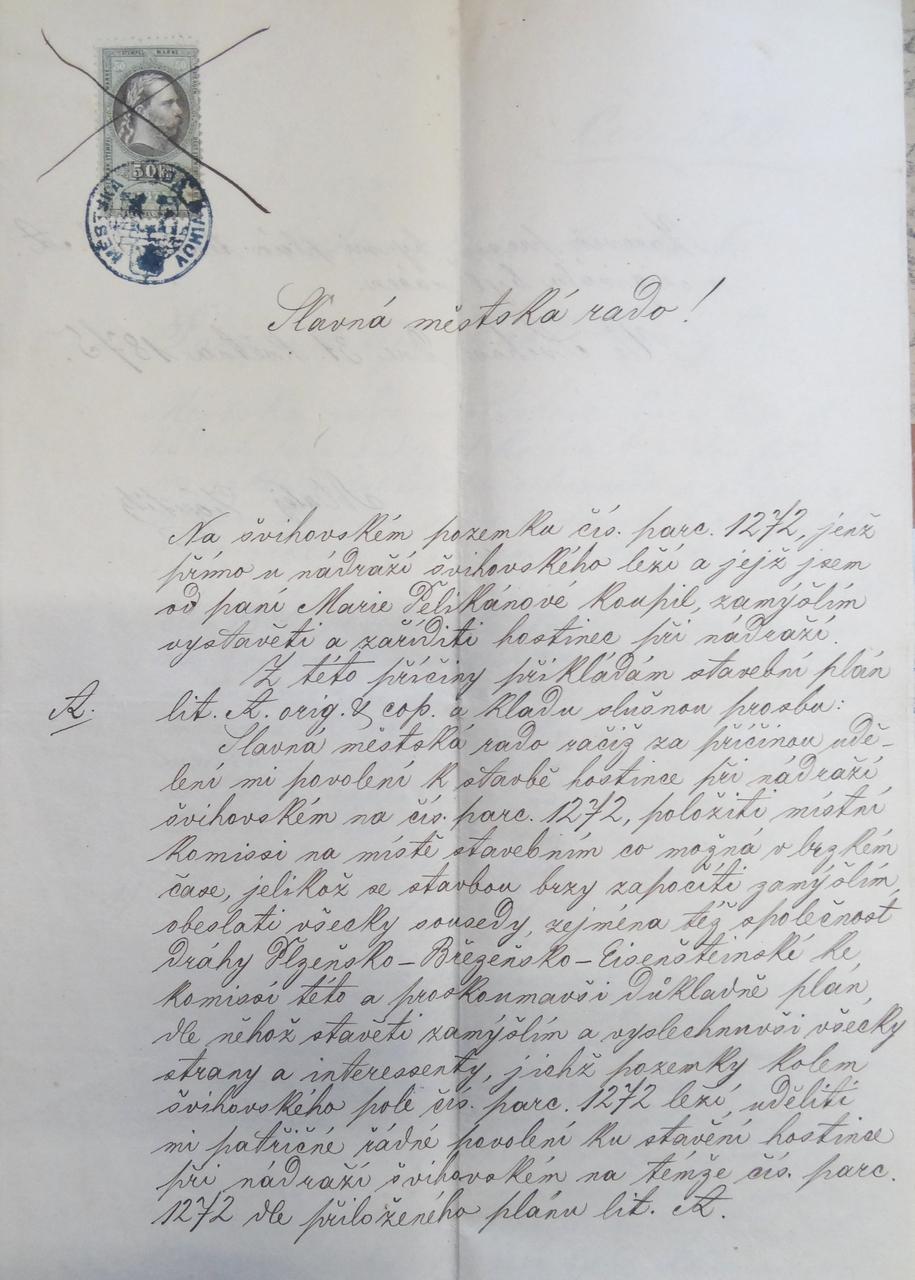 STEMPEL MARKE
50
50
50 kr
MĚSTSKÁ RADA ŠVIHOV
Slavná městská rado!
Na švihovském pozemku čís. parc. 1272, jenž
přímo u nádraží švihovského leží a jejž jsem
od paní Marie Pelikánové koupil, zamýšlím
vystavěti a zaříditi hostinec při nádraží.
Z této příčiny přikládám stavební plán
A.
lit. A. orig. & cop. a kladu slušnou prosbu:
Slavná městská rado račiž za příčinou udě-
lení mi povolení k stavbě hostince při nádraží
švihovském na čís. parc. 1272, položiti místní
komissi na místě stavebním co možná v brzkém
čase, jelikož se stavbou brzy započíti zamýšlím,
obeslati všecky sousedy, zejména též společnost
dráhy Plzeňsko-Březeňsko-Eisenšteinské ke
komissí této a proskoumavši důkladně plán,
dle něhož stavěti zamýšlím a vyslechnuvši všecky
strany a interessenty, jichž pozemky kolem
švihovského pole čís. parc. 1272 leží, uděliti
mi patřičné řádné povolení ku stavění hostince
při nádraží švihovském na témže čís. parc.
1272 dle přiloženého plánu lit. A.